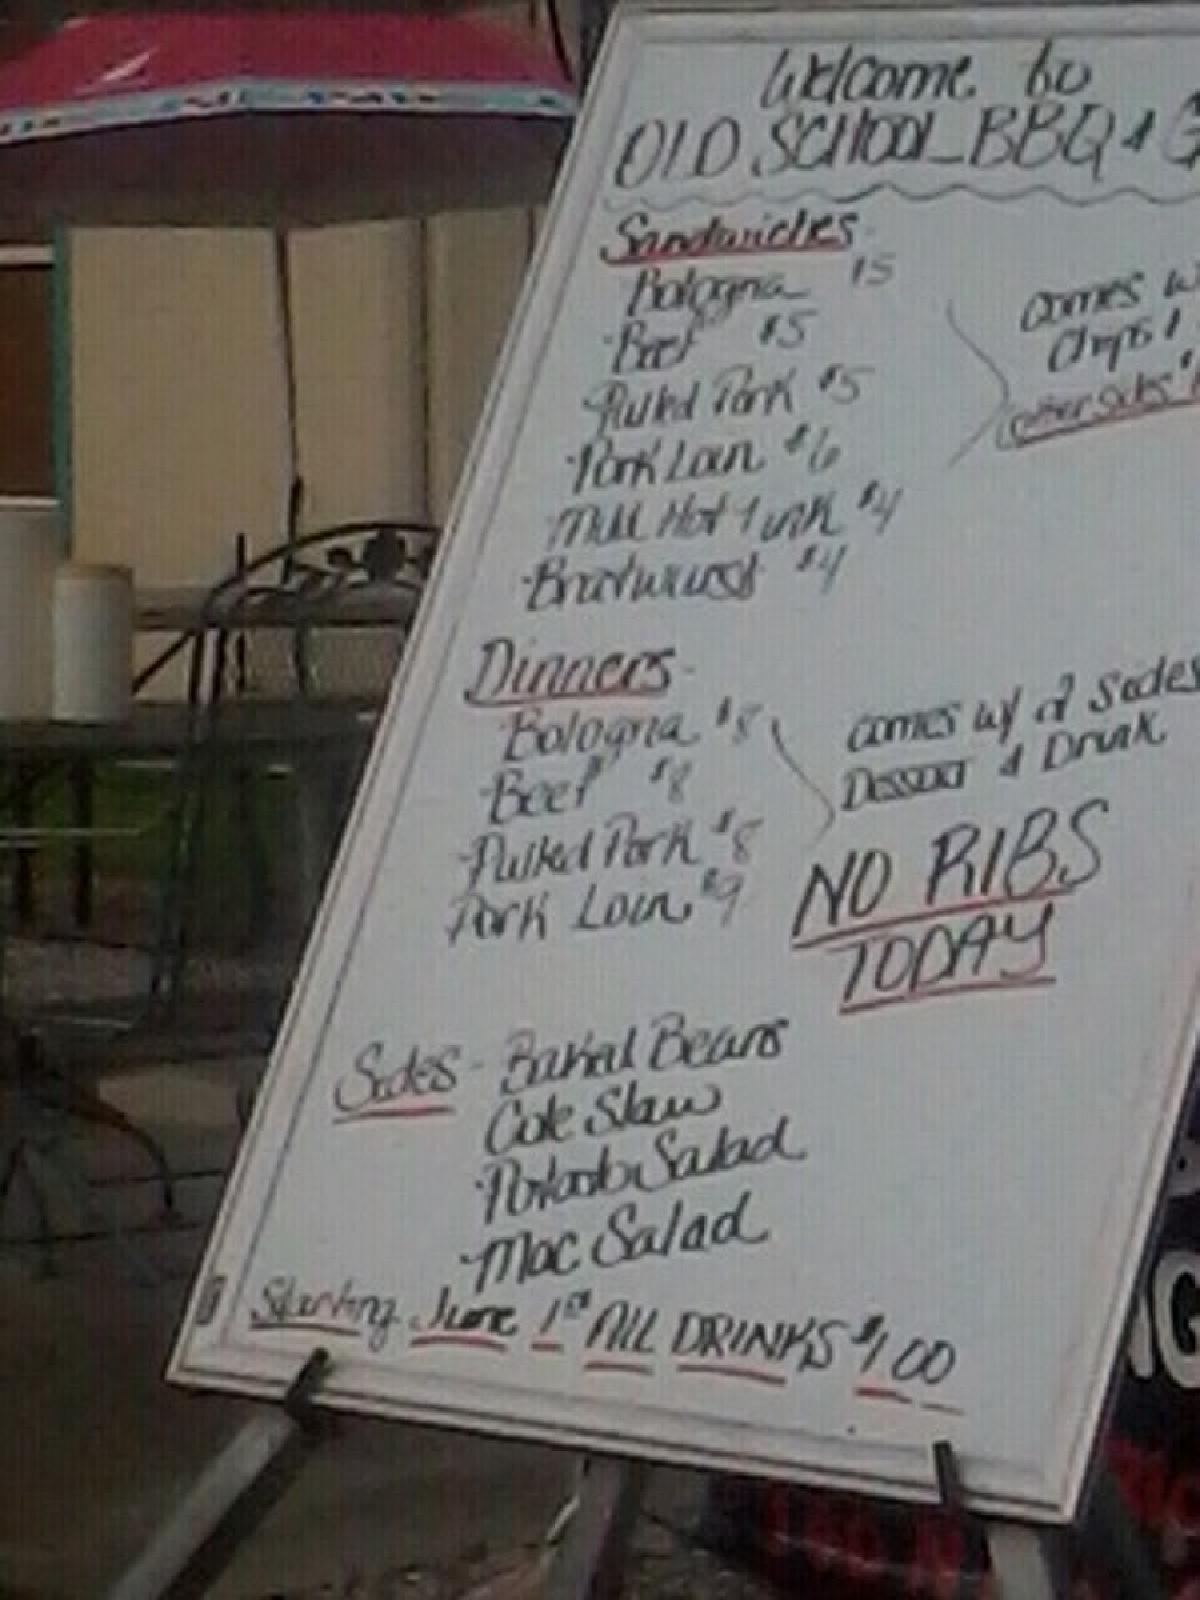 Welcome to
OLD SCHOOL BBQ & G
Sandwiches
Bologna $5
Beef $5
Pulled Pork $5
Pork Loin $6
Mild Hot Link $4
Bratwurst $4
comes w/
Chips &
other sides
Dinners
Bologna $8
Beef $8
Pulled Pork $8
Pork Loin $9
comes w/ 2 Sides
Dessert & Drink
NO RIBS
TODAY
Sides - Baked Beans
Cole Slaw
Potato Salad
Mac Salad
Starting June 1st All DRINKS $1.00